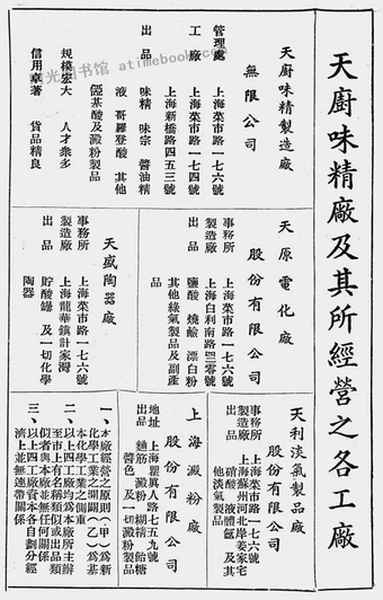 天廚味精廠及其所經營之各工廠
天廚味精製造廠
無限公司
管理處 上海菜市路一七六號
工廠 上海菜市路一七四號
上海新橋路四五三號
出品 味精 味宗 醬油精
液 哥羅登酸 其他
氨基酸及澱粉製品
規模宏大 人才衆多
信用卓著 貨品精良
天原電化廠
股份有限公司
事務所 上海菜市路一七六號
製造廠 上海白利南路四二零號
出品 鹽酸 燒鹼 漂白粉
其他綠氣製品及副產
品
天盛陶器廠
事務所 上海菜市路一七六號
製造廠 上海龍華鎮計家灣
出品 貯酸罎 及一切化學
陶器
天利淡氣製品廠
股份有限公司
事務所 上海菜市路一七六號
製造廠 上海蘇州河北岸姜家宅
出品 硝酸 液體氫 及其
他淡氣製品
上海澱粉廠
股份有限公司
地址 上海瞿眞人路七五九號
出品 麵筋 澱粉 糊精 飴糖
醬色 及一切澱粉製品
一、本廠經營之原則(甲)爲新
化學工業之開闢(乙)爲基
本化學工業之側重
二、以上四工廠均爲本廠所主辦
至市上有名稱類似或出品類
似者與本廠並無任何關係
三、以上四工廠資本各自劃分經
濟上並無連帶關係
时光图书馆 atimebook.com